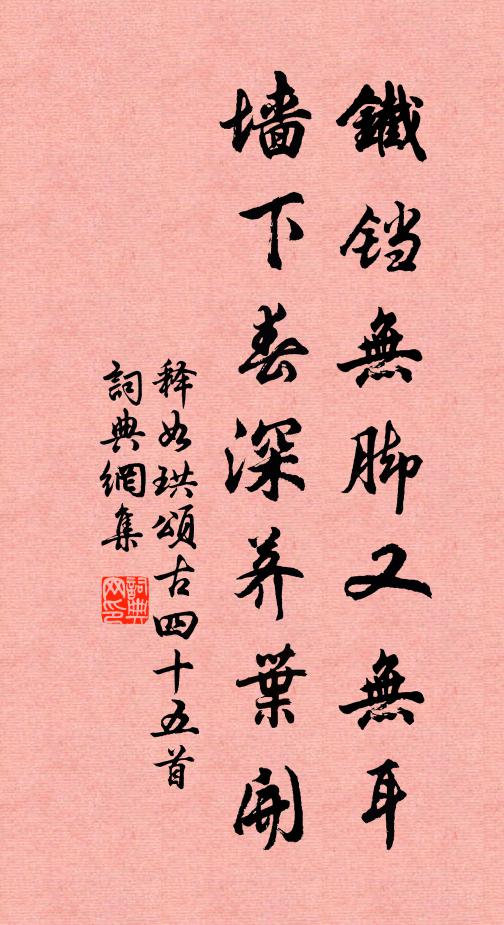 鐵铛無脚又無耳
墙下春深荞葉開
释如珙頌古四十五首
詞典網集
詞典网印